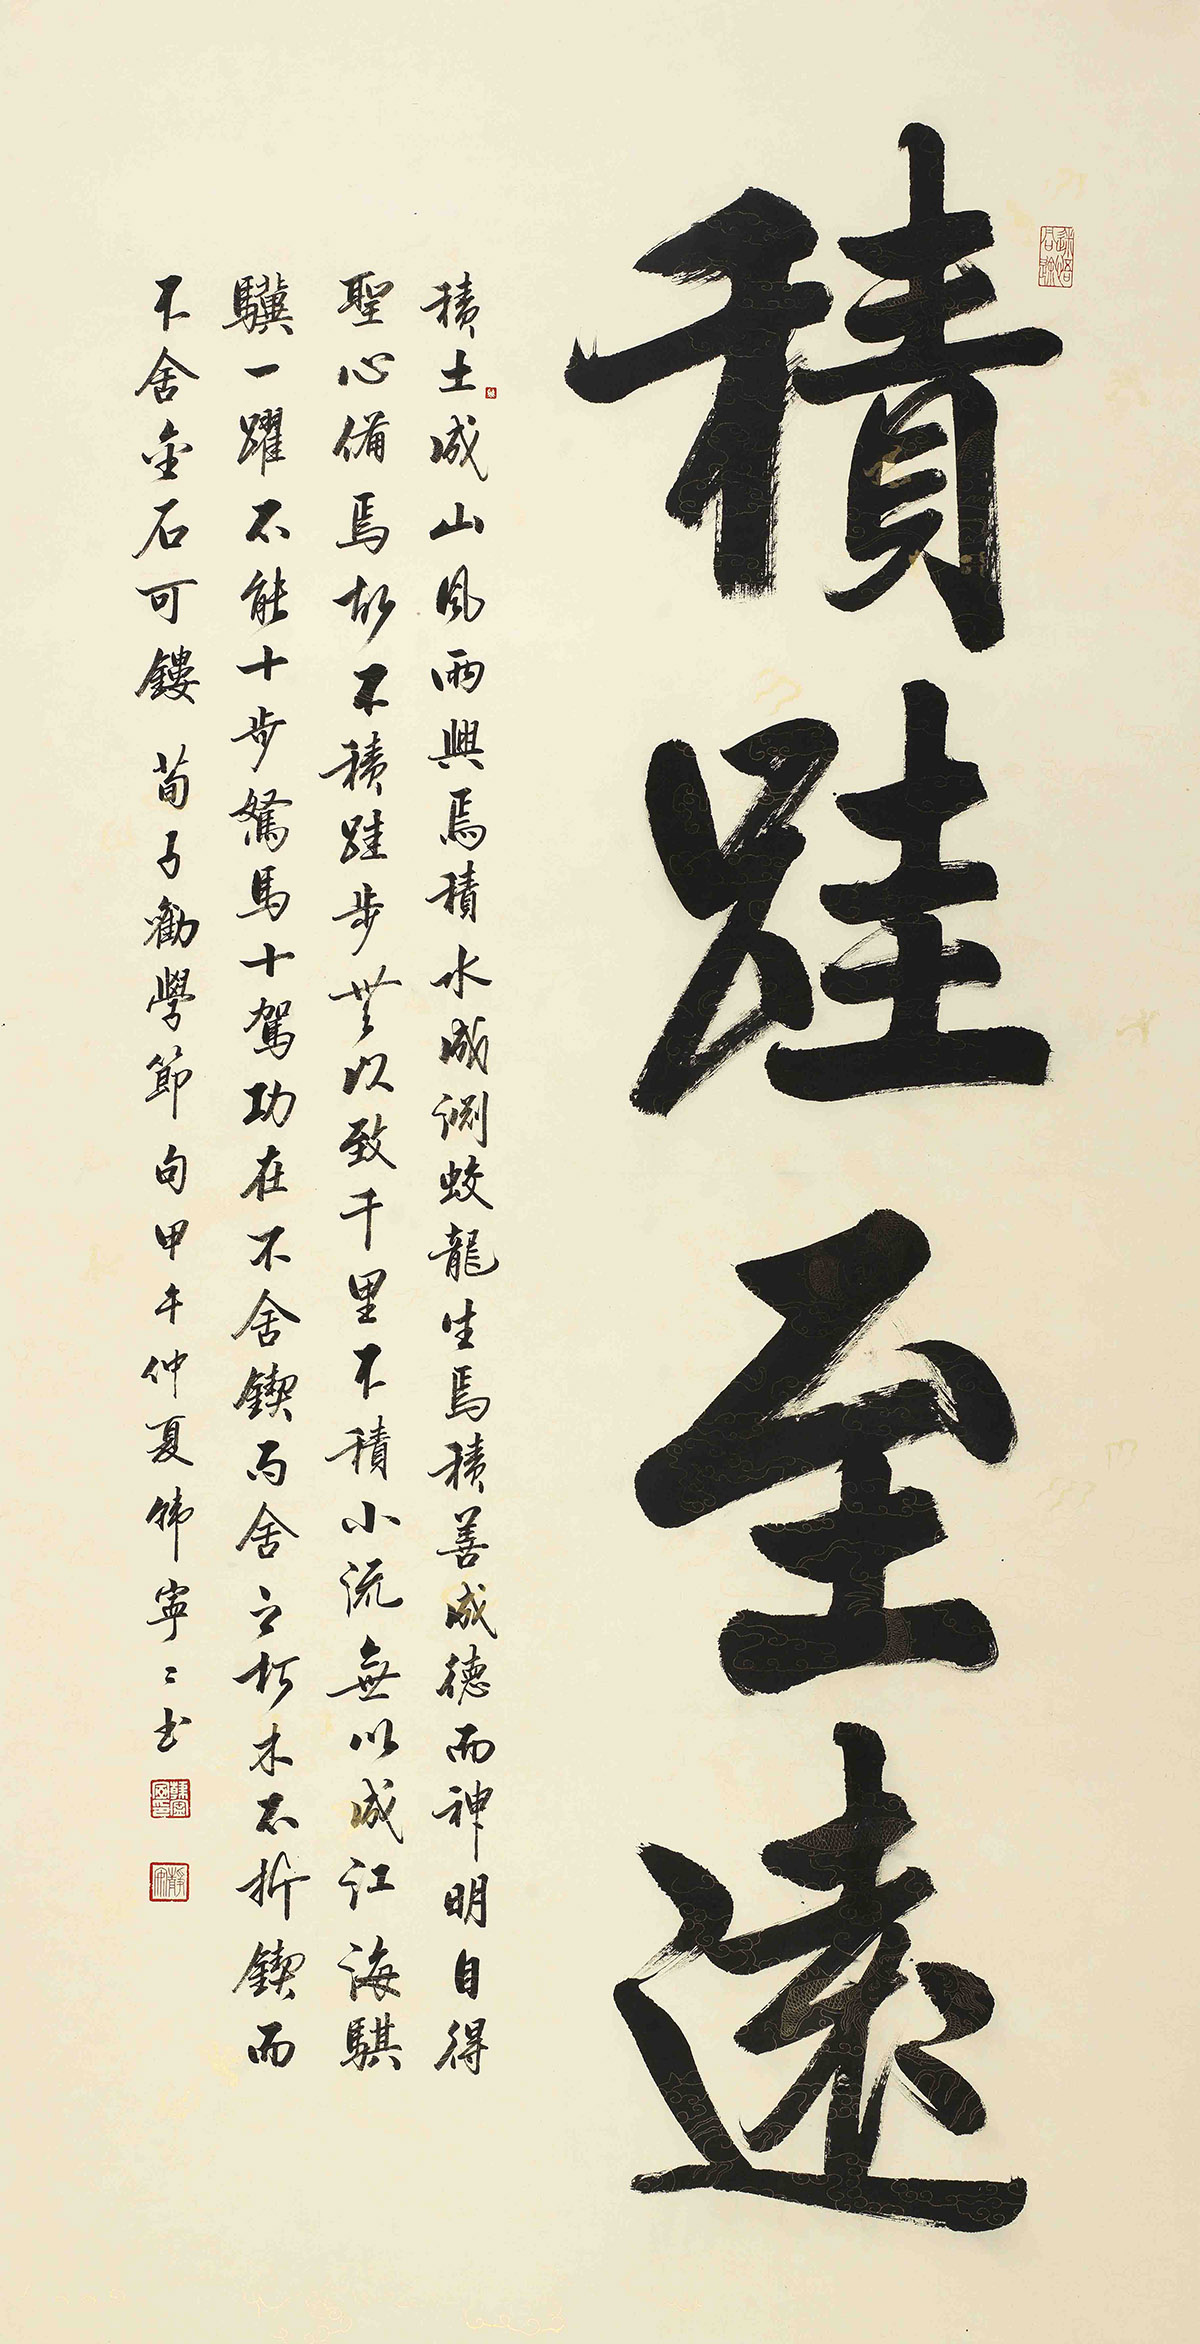 積跬至遠
積土成山風雨興焉積水成淵蛟龍生焉積善成德而神明自得
聖心備焉故不積跬步無以致千里不積小流無以成江海騏
驥一躍不能十步駑馬十駕功在不舍鍥而舍之朽木不折鍥而
不舍金石可鏤 荀子勸學節句甲午仲夏韩寧寧书